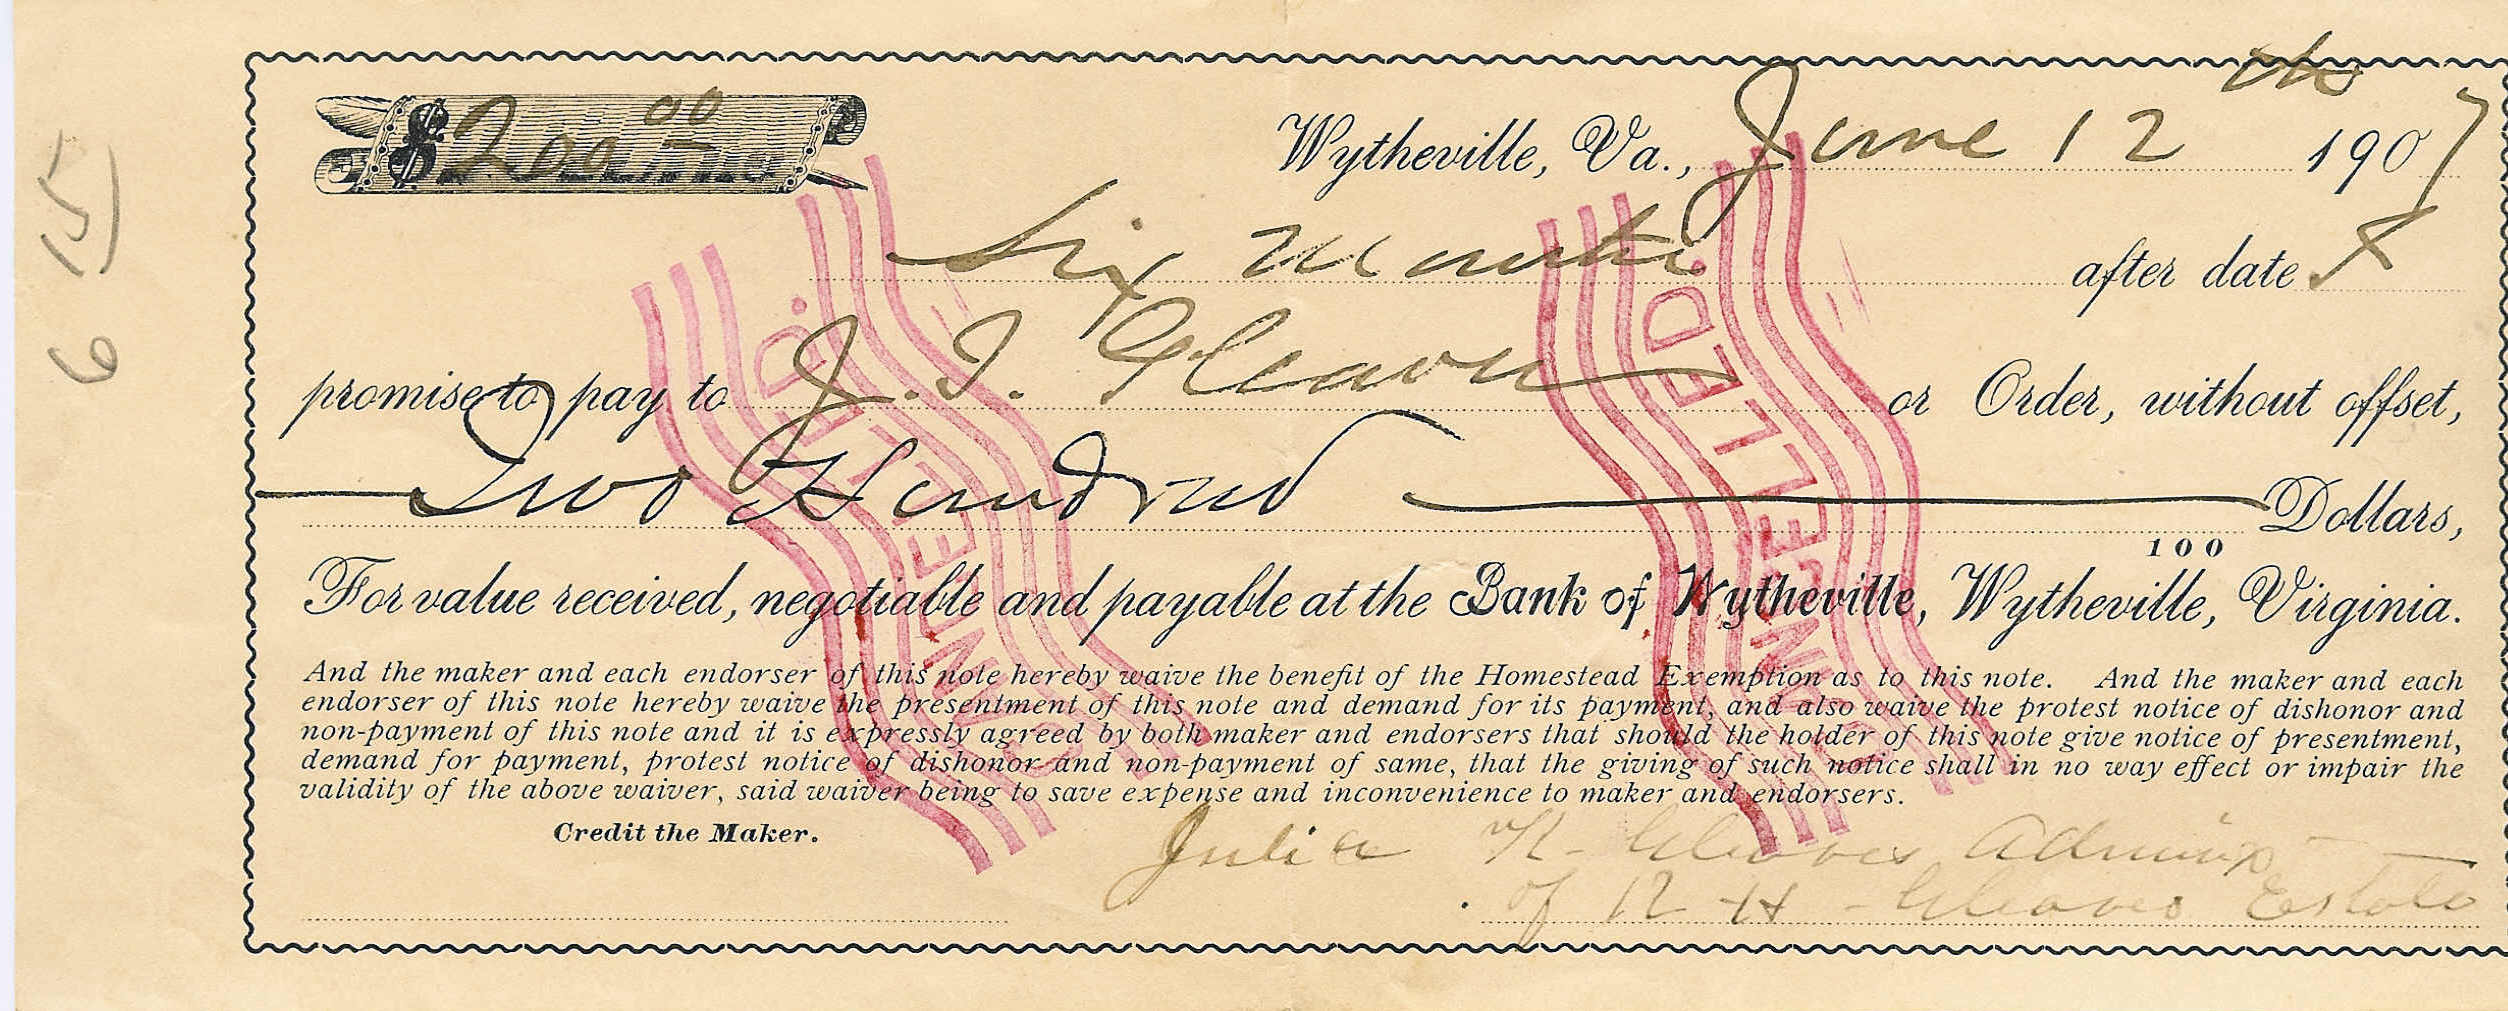 $200 00/100
Wytheville, Va., June 12 th 1907
Six Months after date I
promise to pay to J. T. Gleaves or Order, without offset,
Two Hundred Dollars,
100
For value received, negotiable and payable at the Bank of Wytheville, Wytheville, Virginia.
And the maker and each endorser of this note hereby waive the benefit of the Homestead Exemption as to this note. And the maker and each
endorser of this note hereby waive the presentment of this note and demand for its payment, and also waive the protest notice of dishonor and
non-payment of this note and it is expressly agreed by both maker and endorsers that should the holder of this note give notice of presentment,
demand for payment, protest notice of dishonor and non-payment of same, that the giving of such notice shall in no way effect or impair the
validity of the above waiver, said waiver being to save expense and inconvenience to maker and endorsers.
Credit the Maker.
Julia K. Gleaves Adminx
of R H Gleaves Estate
CANCELLED.
CANCELLED.
6 15